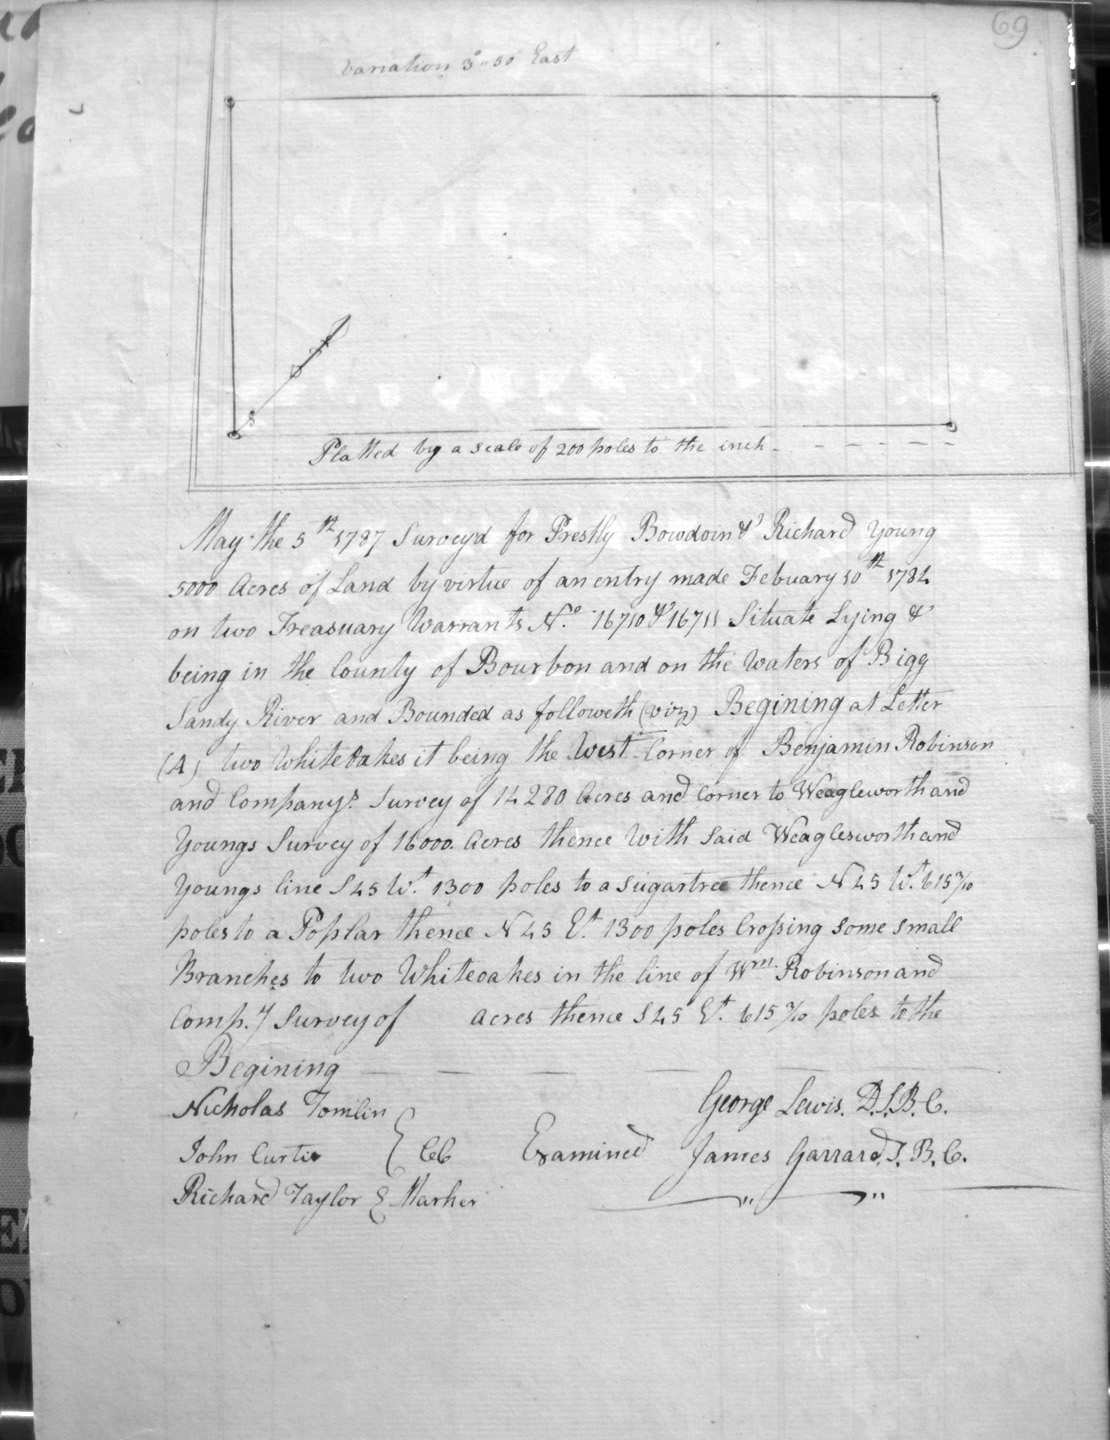 69
Variation 3°" 50' East
8
Platted by a Scale of 200 poles to the inch -
May the 5th 1787 Survey'd for Prestly Bowdoin & Richard Young
5000 Acres of Land by virtue of an entry made Febuary 10th 1784
on two Treasuary Warrants No. 16710 & 16711 Situate Lying &
being in the County of Bourbon and on the Waters of Bigg
Sandy River and Bounded as followeth (viz) Begining at Letter
(A) two White Oakes it being the West Corner of Benjamin Robinson
and Companys. Survey of 14280 Acres and Corner to Weagleworth and
Youngs Survey of 16000. Acres thence With Said Weaglesworth and
Youngs line S 45 Wt. 1300 poles to a Sugartree thence N 45 Wt. 615 7/10
poles to a Poplar thence N 45 Et. 1300 poles Crossing Some Small
Branches to two Whiteoakes in the line of Wm. Robinson and
Comp.y Survey of acres thence S 45 Et. 615 7/10 poles to the
Begining
Nicholas Tomlin
George Lewis. D.S.B.C.
John Curtis } CC
Examined James Garrard. S. B. C.
Richard Taylor } Marker